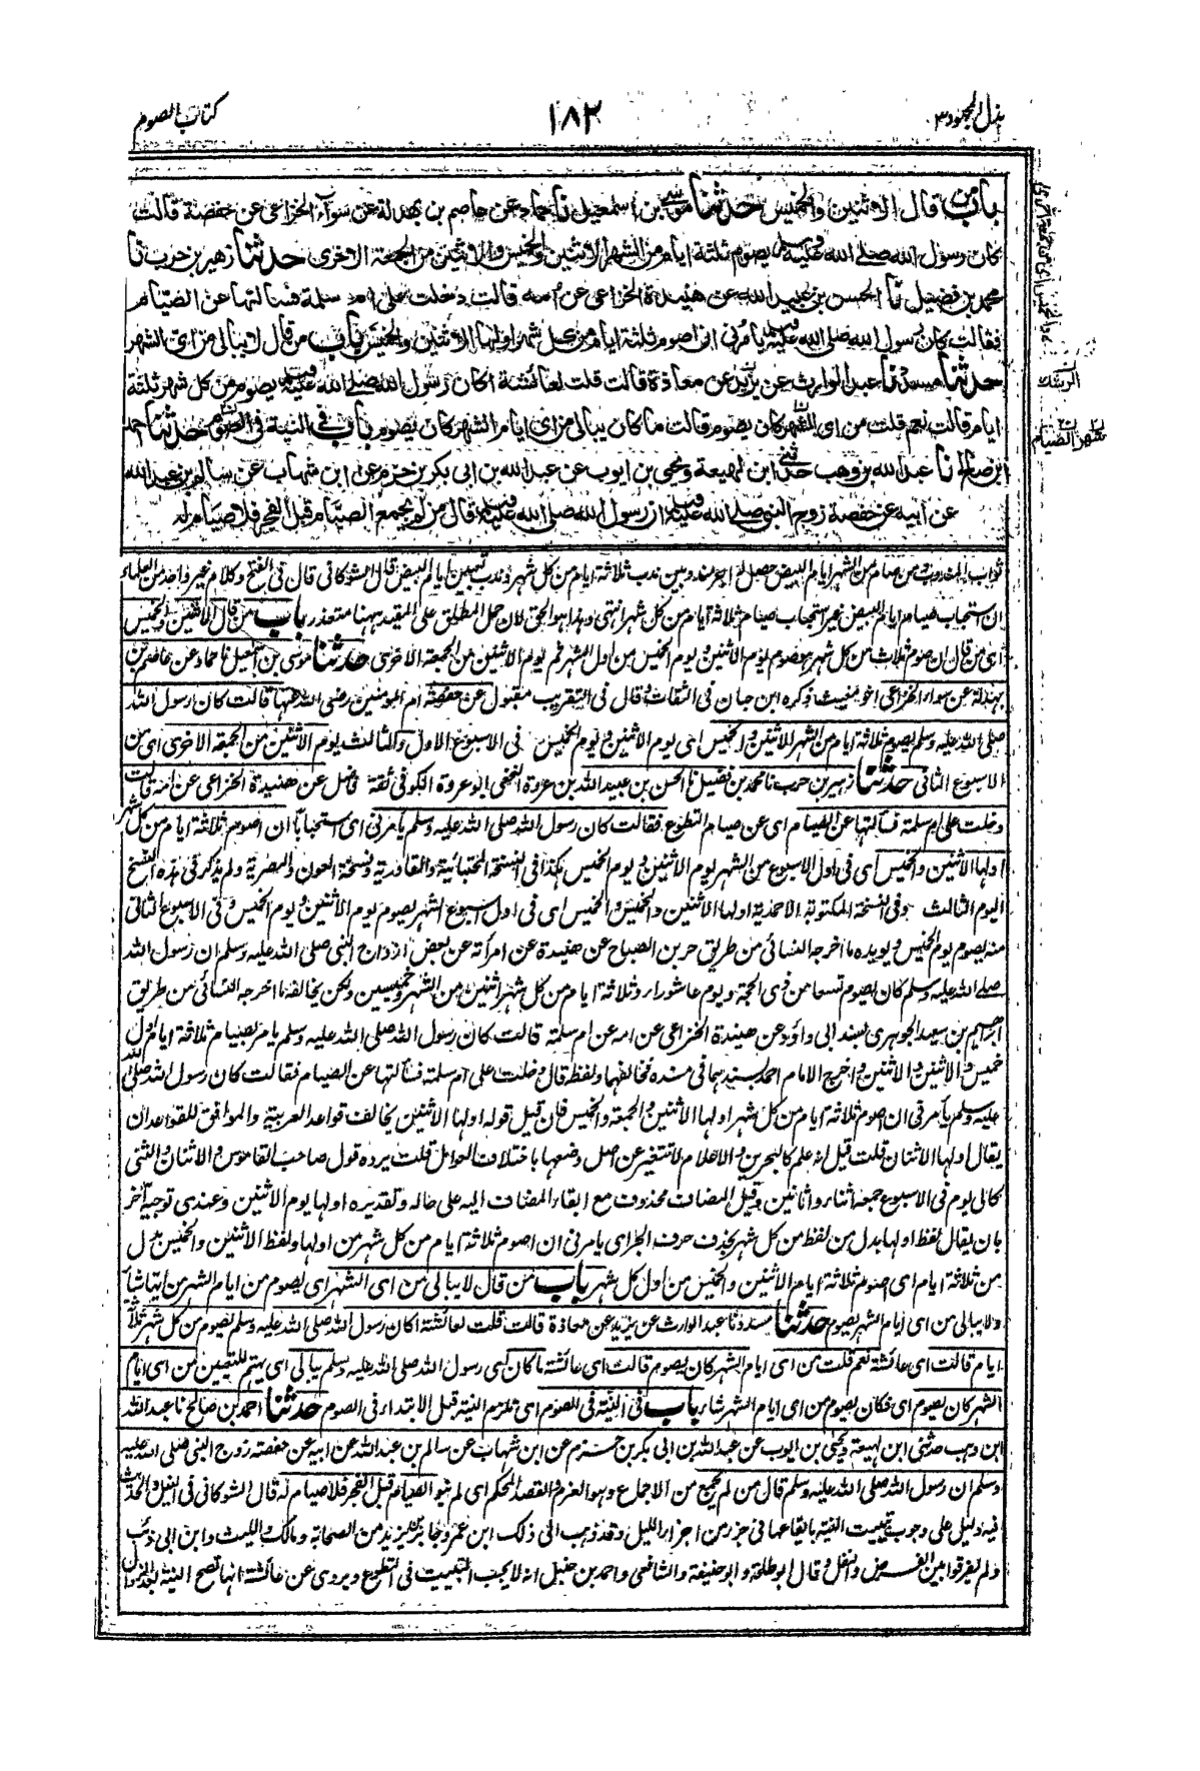 بذل المجهود ٣
١٨٢
كتاب الصوم
باب من قال الاثنين والخميس حدثنا موسى بن اسمعيل نا حماد عن عاصم بن بهدلة عن سواء الخزاعى عن حفصة قالت
كان رسول الله صلى الله عليه وسلم يصوم ثلثة ايام من الشهر الاثنين والخميس والاثنين من الجمعة الاخرى حدثنا زهير بن حرب نا
محمد بن فضيل نا الحسن بن عبيد الله عن هنيدة الخزاعى عن امه قالت دخلت على ام سلمة فسالتها عن الصيام
فقالت كان رسول الله صلى الله عليه وسلم يامرنى ان اصوم ثلثة ايام من كل شهر اولها الاثنين والخميس باب من قال لا يبالى من اى الشهر
حدثنا مسدد نا عبد الوارث عن يزيد عن معاذة قالت قلت لعائشة اكان رسول الله صلى الله عليه وسلم يصوم من كل شهر ثلثة
ايام قالت نعم قلت من اى الشهر كان يصوم قالت ما كان يبالى من اى ايام الشهر كان يصوم باب فى النية فى الصوم حدثنا احمد
ابن صالح نا عبد الله بن وهب حدثنى ابن لهيعة ويحيى بن ايوب عن عبد الله بن ابى بكر بن حزم عن ابن شهاب عن سالم بن عبد الله
عن ابيه عن حفصة زوج النبى صلى الله عليه وسلم ان رسول الله صلى الله عليه وسلم قال من لم يجمع الصيام قبل الفجر فلا صيام له
الرشك
شهر الصيام
ثواب المندوب ومن صام من الشهر ايام البيض حصل له اجر مندوبين ندب ثلاثة ايام من كل شهر وندب تعيين ايام البيض قال الشوكانى قال فى الفتح وكلام غير واحد من العلماء
ان استحباب صيام ايام البيض غير استحباب صيام ثلاثة ايام من كل شهر انتهى وهذا هو الحق لان حمل المطلق على المقيد ههنا متعذر باب من قال الاثنين والخميس
اى من قال ان صوم ثلاث من كل شهر بصوم يوم الاثنين ويوم الخميس من اول الشهر ثم يوم الاثنين من الجمعة الاخرى حدثنا موسى بن اسمعيل نا حماد عن عاصم بن
بهدلة عن سواء الخزاعى اخو مغيث ذكره ابن حبان فى الثقات وقال فى التقريب مقبول عن حفصة ام المومنين رضى الله عنها قالت كان رسول الله
صلى الله عليه وسلم يصوم ثلاثة ايام من الشهر الاثنين والخميس اى يوم الاثنين ويوم الخميس فى الاسبوع الاول والثالث يوم الاثنين من الجمعة الاخرى اى من
الاسبوع الثانى حدثنا زهير بن حرب نا محمد بن فضيل نا الحسن بن عبيد الله بن عروة النخعى ابو عروة الكوفى ثقة فاضل عن هنيدة الخزاعى عن امه قالت
دخلت على ام سلمة فسألتها عن الصيام اى عن صيام التطوع فقالت كان رسول الله صلى الله عليه وسلم يأمرنى اى استحبابا ان اصوم ثلاثة ايام من كل شهر
اولها الاثنين والخميس اى فى اول الاسبوع من الشهر يوم الاثنين ويوم الخميس هكذا فى النسخة المجتبائية والقادرية ونسخة العون والمصرية ولم يذكر فى هذه النسخ
اليوم الثالث وفى النسخة المكتوبة الاحمدية اولها الاثنين والخميس والخميس اى فى اول اسبوع الشهر يصوم يوم الاثنين ويوم الخميس وفى الاسبوع الثانى
منه يصوم يوم الخميس ويويده ما اخرجه النسائى من طريق حر بن الصباح عن هنيدة عن امرأته عن بعض ازواج النبى صلى الله عليه وسلم ان رسول الله
صلى الله عليه وسلم كان يصوم تسعا من ذى الحجة ويوم عاشوراء وثلاثة ايام من كل شهر اثنين من الشهر وخميسين ولكن يخالفه ما اخرجه النسائى من طريق
ابراهيم بن سعيد الجوهرى بسند ابى داؤد عن هنيدة الخزاعى عن امه عن ام سلمة قالت كان رسول الله صلى الله عليه وسلم يامر بصيام ثلاثة ايام اول
خميس والاثنين والاثنين واخرج الامام احمد بسنديهما فى مسنده مخالفهما ولفظه قال دخلت على ام سلمة فسألتها عن الصيام فقالت كان رسول الله صلى الله
عليه وسلم يأمرنى ان اصوم ثلاثة ايام من كل شهر اولها الاثنين والجمعة والخميس فان قيل قوله اولها الاثنين يخالف قواعد العربية والموافق للقواعد ان
يقال اولها الاثنان قلت قيل انه علم كالبحرين والاعلام لا تتغير عن اصل وضعها باختلاف العوامل قلت يرده قول صاحب القاموس والاثنان والثنى
كالى يوم فى الاسبوع جمعه اثناء واثانين وقيل المضاف محذوف مع ابقاء المضاف اليه على حاله وتقديره اولها يوم الاثنين وعندى توجيه آخر
بان يقال لفظ اولها بدل من لفظ من كل شهر بحذف حرف الجر اى يامرنى ان اصوم ثلاثة ايام من كل شهر من اولها ولفظ الاثنين والخميس بدل
من ثلاثة ايام اى اصوم ثلاثة ايام الاثنين والخميس من اول كل شهر باب من قال لا يبالى من اى الشهر اى يصوم من ايام الشهر من ايها شاء
ولا يبالى من اى ايام الشهر يصوم حدثنا مسدد نا عبد الوارث عن يزيد عن معاذة قالت قلت لعائشة اكان رسول الله صلى الله عليه وسلم يصوم من كل شهر ثلاثة
ايام قالت اى عائشة نعم قلت من اى ايام الشهر كان يصوم قالت اى عائشة ما كان اى رسول الله صلى الله عليه وسلم يبالى اى يهتم للتعيين من اى ايام
الشهر كان يصوم اى فكان يصوم من اى ايام الشهر شاء باب فى النية فى الصوم اى تلازم النية قبل الابتداء فى الصوم حدثنا احمد بن صالح نا عبد الله
ابن وهب حدثنى ابن لهيعة ويحيى بن ايوب عن عبد الله بن ابى بكر بن حزم عن ابن شهاب عن سالم بن عبد الله عن ابيه عن حفصة زوج النبى صلى الله عليه
وسلم ان رسول الله صلى الله عليه وسلم قال من لم يجمع من الاجماع وهو العزم والقصد المحكم اى لم ينو الصيام قبل الفجر فلا صيام له قال الشوكانى فى النيل والحديث
فيه دليل على وجوب تبييت النية بايقاعها فى جزء من اجزاء الليل وقد ذهب الى ذلك ابن عمر وجابر بن يزيد من الصحابة ومالك والليث وابن ابى ذئب
ولم يفرقوا بين الفرض والنفل وقال ابو طلحة وابو حنيفة والشافعى واحمد بن حنبل انه لا يجب التبييت فى التطوع ويروى عن عائشة انها تصح النية